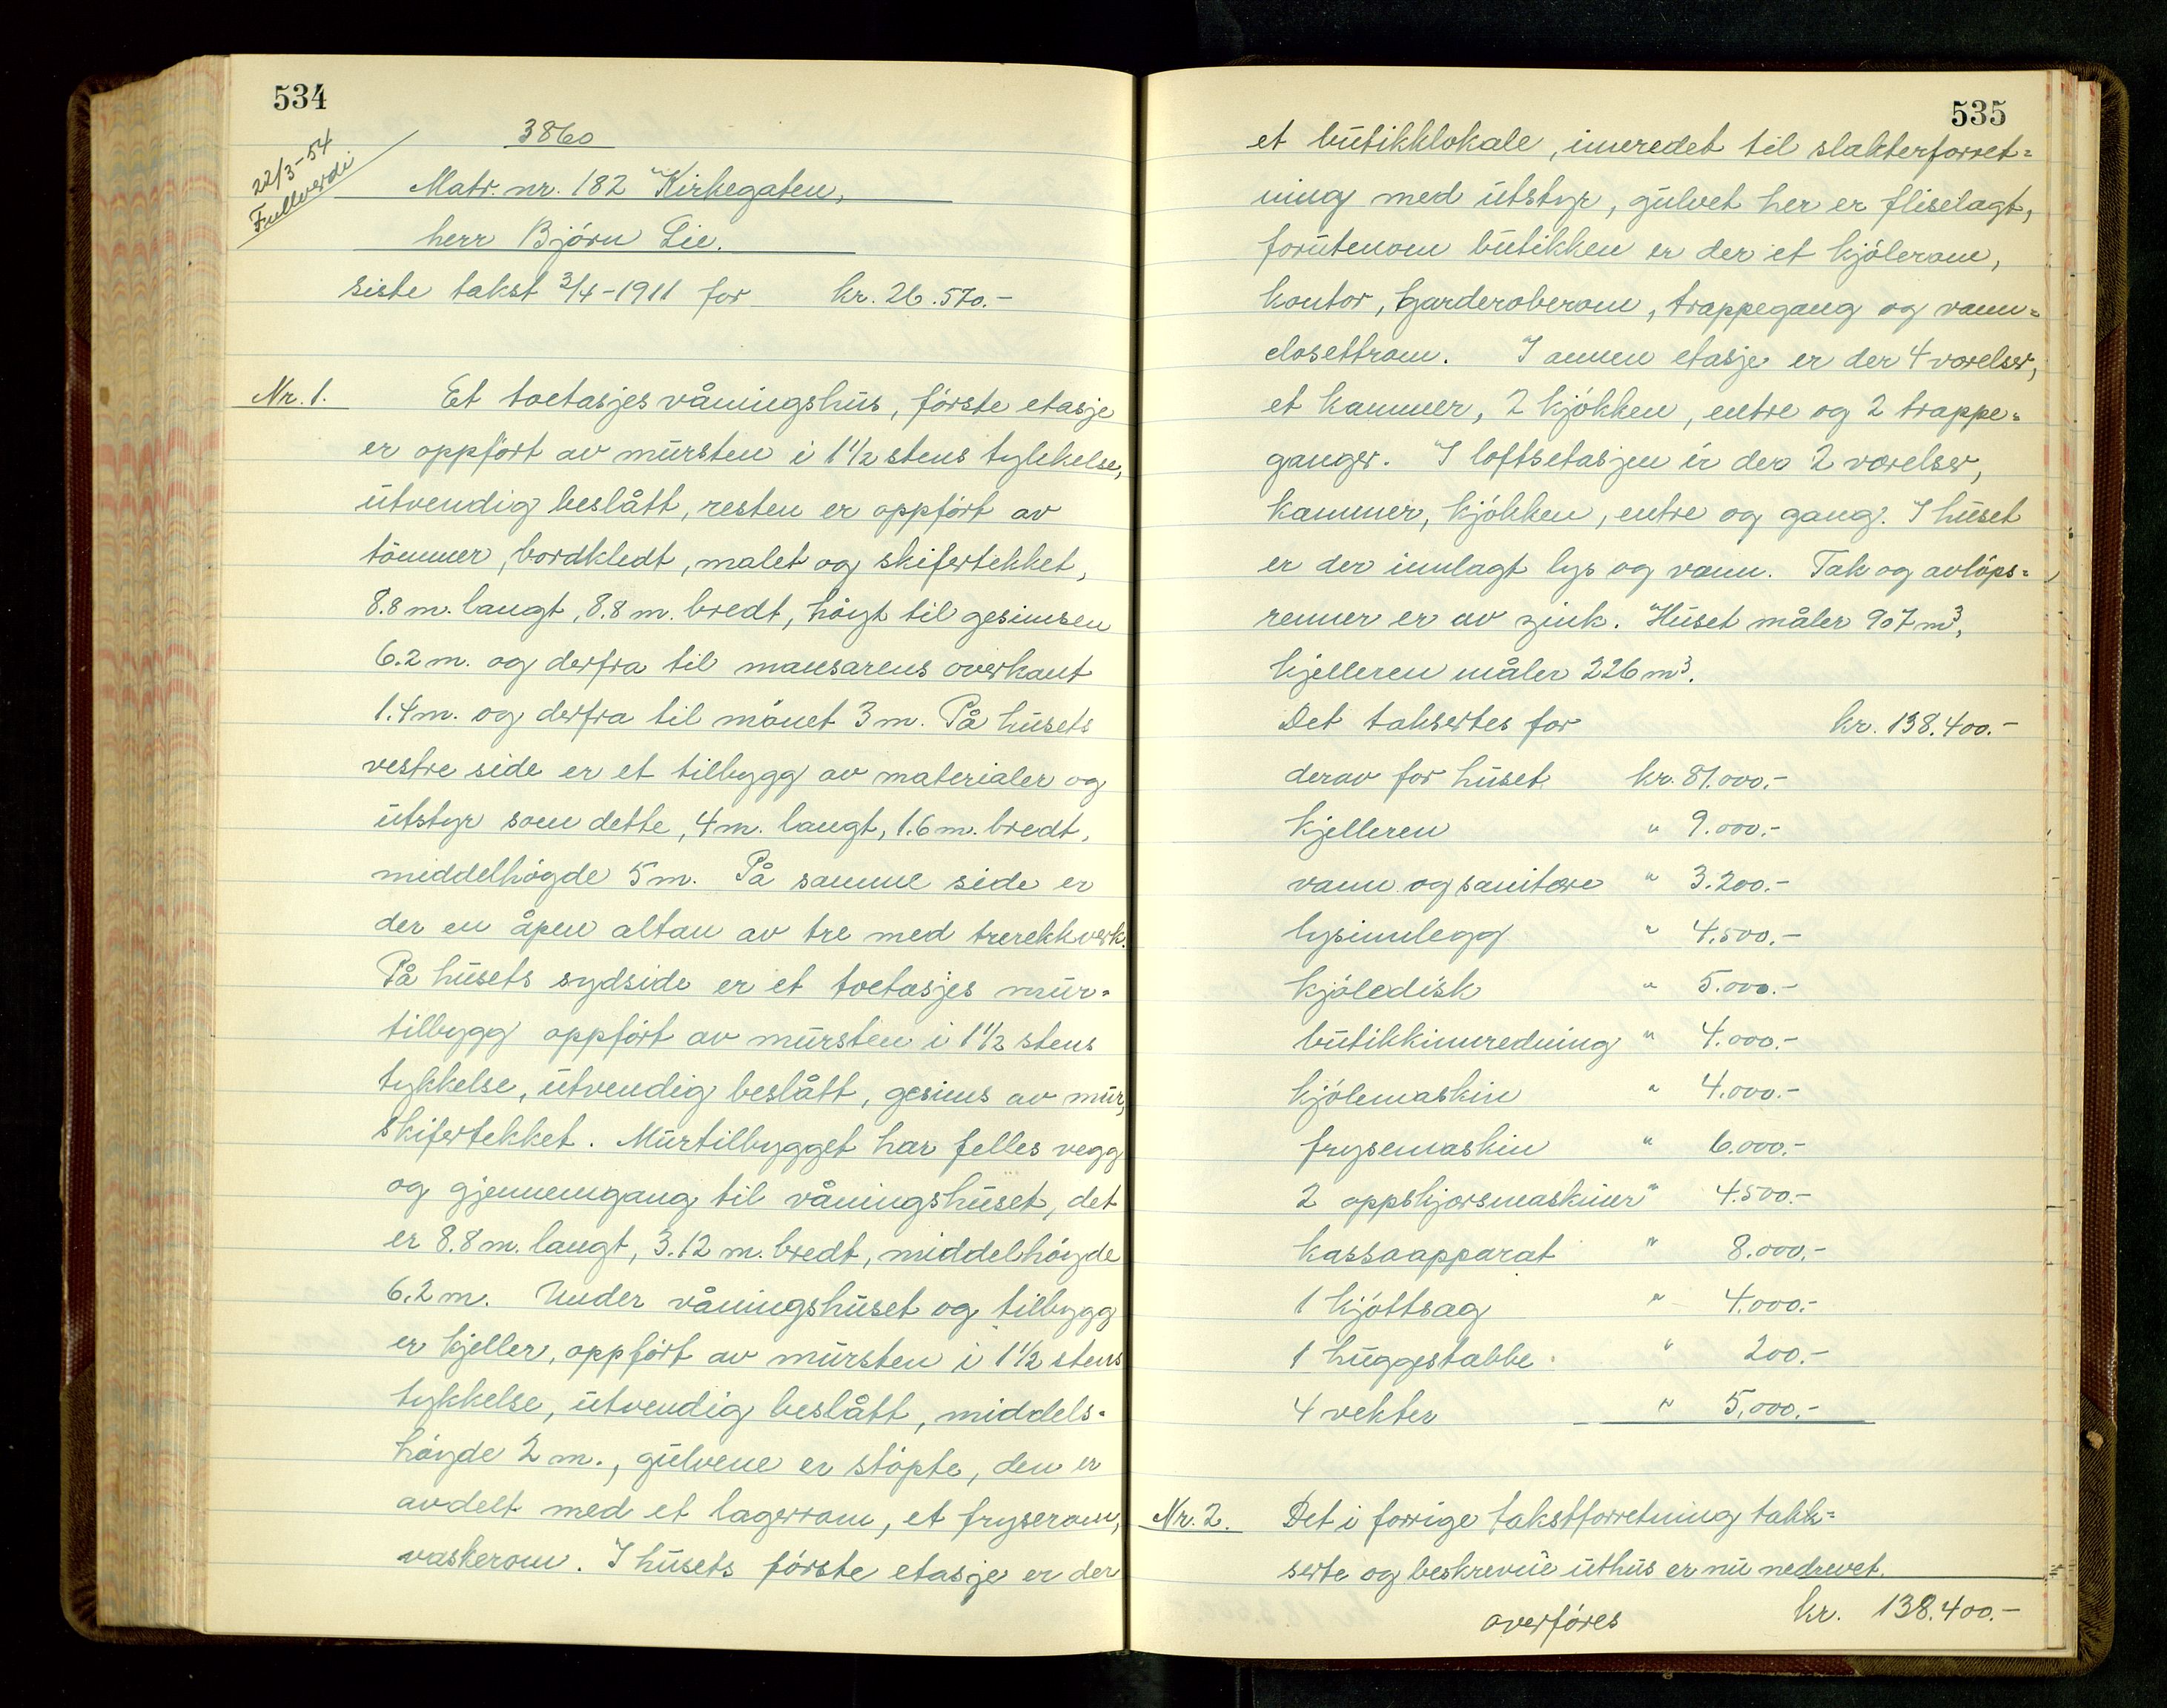 534
22/3-54
Fullverdi
3860
Matr. nr. 182 Kirkegaten,
herr Björn Lie.
siste takst 3/4-1911 for kr. 26.570.-
Nr. 1. Et toetasjes våningshus, förste etasje
er oppfört av mursten i 1 1/2 stens tykkelse,
utvendig beslått, resten er oppfört av
tömmer, bordkledt, malet og skifertekket,
8.8 m. langt, 8.8 m. bredt, höigt til gesimsen
6.2 m. og derfra til mansarens overkant
1.4 m. og derfra til mönet 3 m. På husets
vestre side er et tilbygg av materialer og
utstyr som dette, 4 m. langt, 1.6 m. bredt,
middelhögde 5 m. På samme side er
der en åpen altan av tre med trerekkverk.
På husets sydside er et toetasjes mur=
tilbygg oppfört av mursten i 1 1/2 stens
tykkelse, utvendig beslått, gesims av mur,
skifertekket. Murtilbygget har felles vegg
og gjennemgang til våningshuset, det
er 8.8 m. langt, 3.12 m. bredt, middelhöigde
6.2 m. Under våningshuset og tilbygg
er kjeller, oppfört av mursten i 1 1/2 stens
tykkelse, utvendig beslått, middels=
höigde 2 m., gulvene er stöpte, den er
avdelt med et lagerrom, et fryserom,
vaskerom. I husets förste etasje er der
535
et butikklokale, innredet til slakterforret=
ning med utstyr, gulvet her er fliselagt,
forutenom butikken er der et kjölerom,
kontor, garderoberom, trappegang og vann=
closettrom. I annen etasje er der 4 værelser,
et kammer, 2 kjökken, entre og 2 trappe=
ganger. I loftsetasjen er der 2 værelser,
kammer, kjökken, entre og gang. I huset
er der innlagt lys og vann. Tak og avlöps=
renner er av zink. Huset måler 907 m³,
kjelleren måler 226 m³.
Det taksertes for kr. 138.400.-
derav for huset kr. 81.000.-
kjelleren " 9.000.-
vann og sanitære " 3.200.-
lysinnlegg " 4.500.-
kjöledisk " 5.000.-
butikkinnredning " 4.000.-
kjölemaskin " 4.000.-
frysemaskin " 6.000.-
2 oppskjærsmaskiner " 4.500.-
kassaapparat " 8.000.-
1 kjöttsag " 4.000.-
1 huggestabbe " 200.-
4 vekter " 5.000.-
Nr. 2. Det i forrige takstforretning takk=
serte og beskrevne uthus er nu nedrevet.
overföres kr. 138.400.-